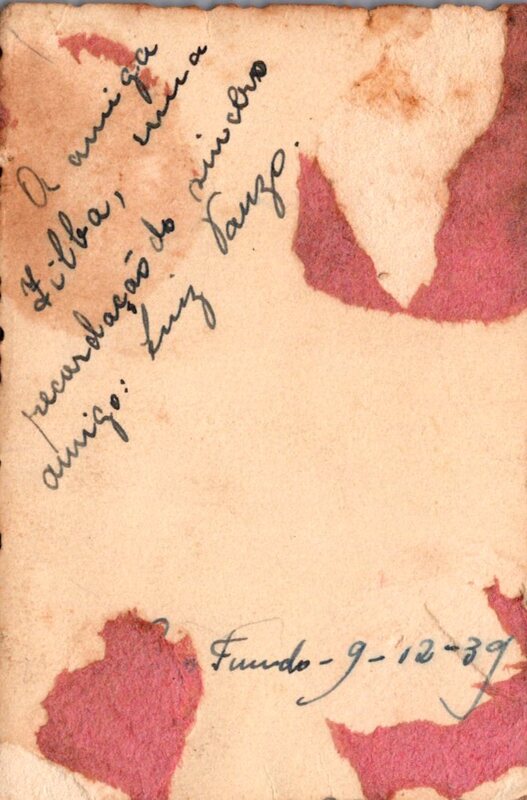 A amiga
Zilba, uma
recordação do sincero
amigo: Luiz Vanzo.
Fundo - 9-12-39